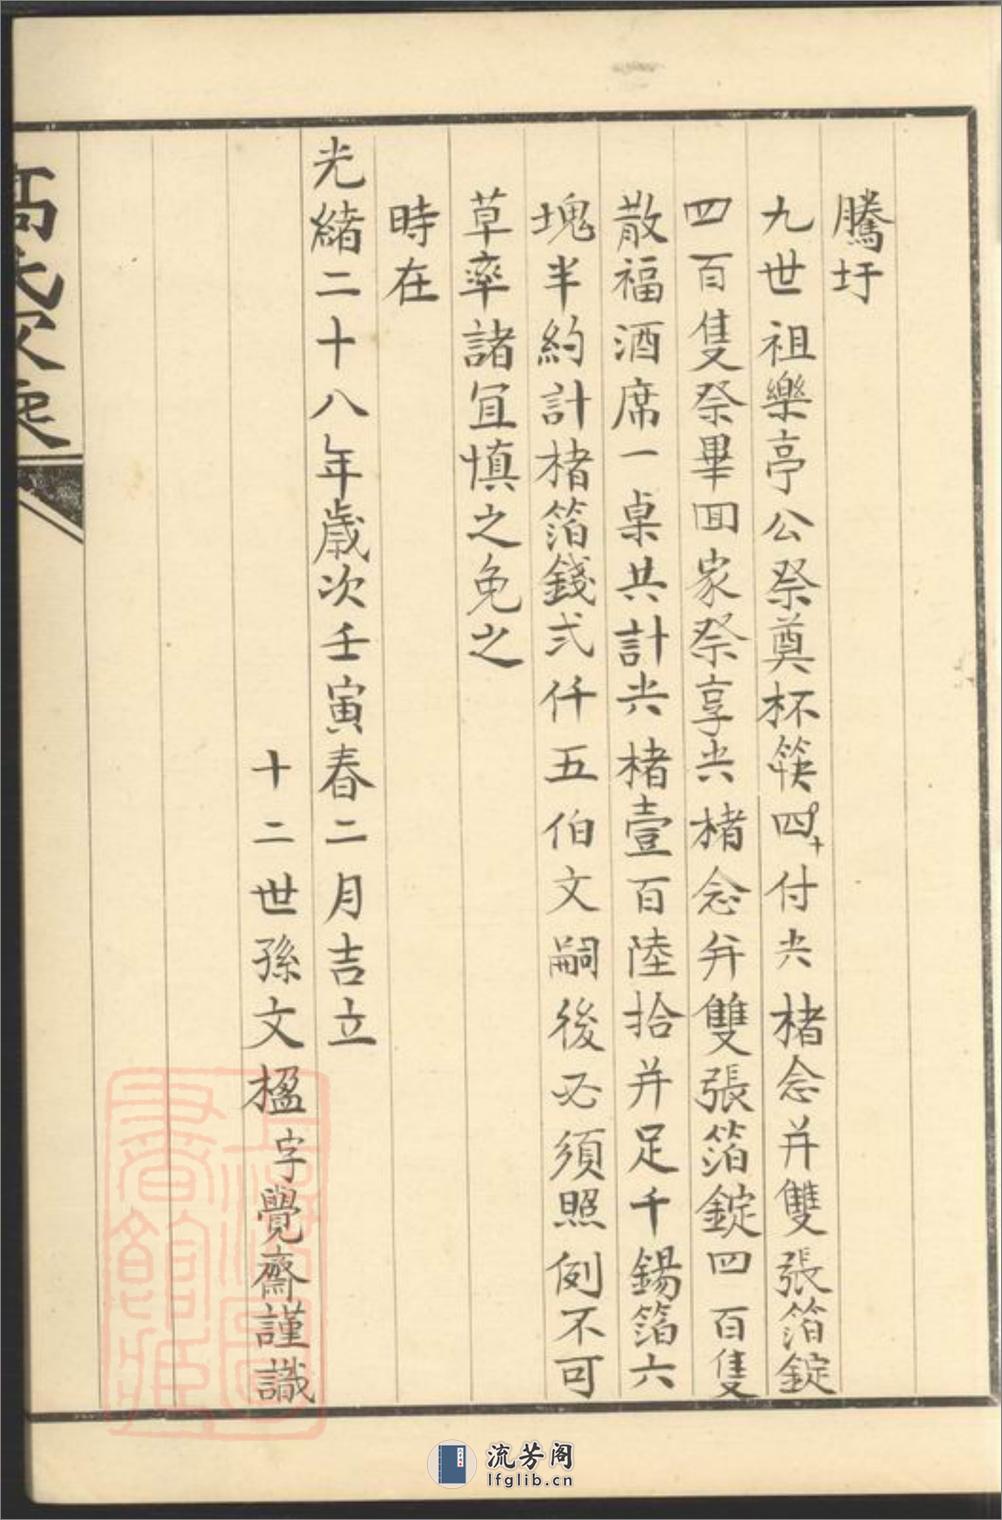 騰圩
九世祖樂亭公祭奠杯筷四十付大楮念并雙張箔錠
四百隻祭畢囬家祭享大楮念并雙張箔錠四百隻
散福酒席一桌共計大楮壹百陸拾并足千錫箔六
塊半約計楮箔錢弍仟五伯文嗣後必須照例不可
草率諸宜慎之免之
時在
光緒二十八年歲次壬寅春二月吉立
十二世孫文楹字覺齋謹識
高氏
上海圖書館藏
流芳阁
lfglib.cn